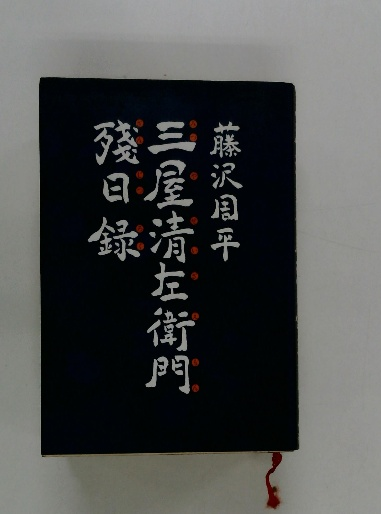 藤沢周平
三屋清左衛門
残日録